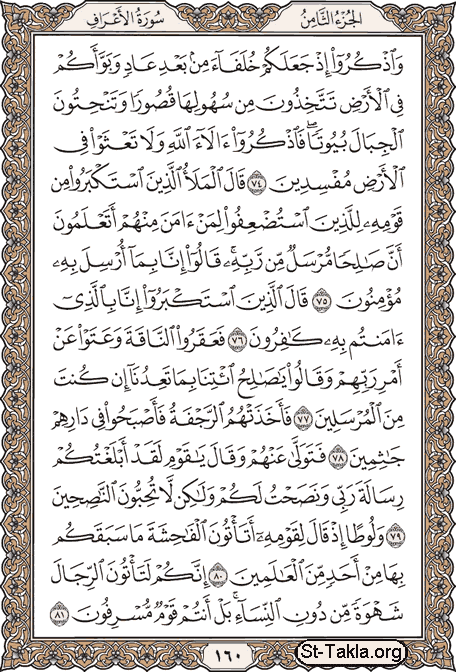 الجزء الثامن
سورة الأعراف
وَٱذۡكُرُوٓاْ إِذۡ جَعَلَكُمۡ خُلَفَآءَ مِنۢ بَعۡدِ عَادٖ وَبَوَّأَكُمۡ
فِي ٱلۡأَرۡضِ تَتَّخِذُونَ مِن سُهُولِهَا قُصُورٗا وَتَنۡحِتُونَ
ٱلۡجِبَالَ بُيُوتٗاۖ فَٱذۡكُرُوٓاْ ءَالَآءَ ٱللَّهِ وَلَا تَعۡثَوۡاْ فِي
ٱلۡأَرۡضِ مُفۡسِدِينَ ٧٤ قَالَ ٱلۡمَلَأُ ٱلَّذِينَ ٱسۡتَكۡبَرُواْ مِن
قَوۡمِهِۦ لِلَّذِينَ ٱسۡتُضۡعِفُواْ لِمَنۡ ءَامَنَ مِنۡهُمۡ أَتَعۡلَمُونَ
أَنَّ صَٰلِحٗا مُّرۡسَلٞ مِّن رَّبِّهِۦۚ قَالُوٓاْ إِنَّا بِمَآ أُرۡسِلَ بِهِۦ
مُؤۡمِنُونَ ٧٥ قَالَ ٱلَّذِينَ ٱسۡتَكۡبَرُوٓاْ إِنَّا بِٱلَّذِيٓ
ءَامَنتُم بِهِۦ كَٰفِرُونَ ٧٦ فَعَقَرُواْ ٱلنَّاقَةَ وَعَتَوۡاْ عَنۡ
أَمۡرِ رَبِّهِمۡ وَقَالُواْ يَٰصَٰلِحُ ٱئۡتِنَا بِمَا تَعِدُنَآ إِن كُنتَ
مِنَ ٱلۡمُرۡسَلِينَ ٧٧ فَأَخَذَتۡهُمُ ٱلرَّجۡفَةُ فَأَصۡبَحُواْ فِي دَارِهِمۡ
جَٰثِمِينَ ٧٨ فَتَوَلَّىٰ عَنۡهُمۡ وَقَالَ يَٰقَوۡمِ لَقَدۡ أَبۡلَغۡتُكُمۡ
رِسَالَةَ رَبِّي وَنَصَحۡتُ لَكُمۡ وَلَٰكِن لَّا تُحِبُّونَ ٱلنَّٰصِحِينَ
٧٩ وَلُوطًا إِذۡ قَالَ لِقَوۡمِهِۦٓ أَتَأۡتُونَ ٱلۡفَٰحِشَةَ مَا سَبَقَكُم
بِهَا مِنۡ أَحَدٖ مِّنَ ٱلۡعَٰلَمِينَ ٨٠ إِنَّكُمۡ لَتَأۡتُونَ ٱلرِّجَالَ
شَهۡوَةٗ مِّن دُونِ ٱلنِّسَآءِۚ بَلۡ أَنتُمۡ قَوۡمٞ مُّسۡرِفُونَ ٨١
١٦٠
St-Takla.org